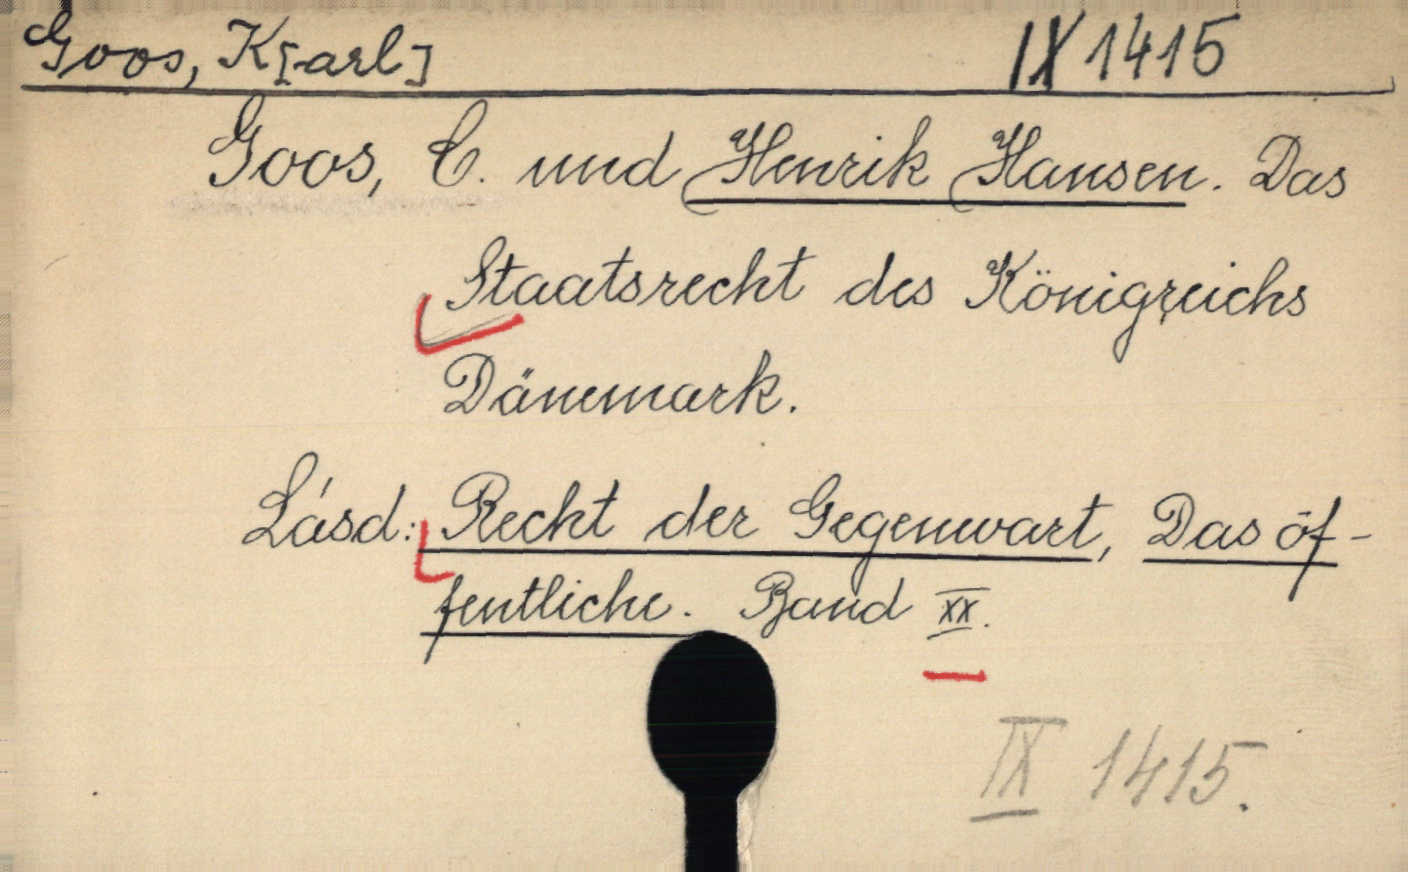 Goos, K[arl] IX 1415
Goos, C. und Henrik Hansen. Das
Staatsrecht des Königreichs
Dänemark.
Lásd: Recht der Gegenwart, Das öf-
fentliche. Band XX.
IX 1415.